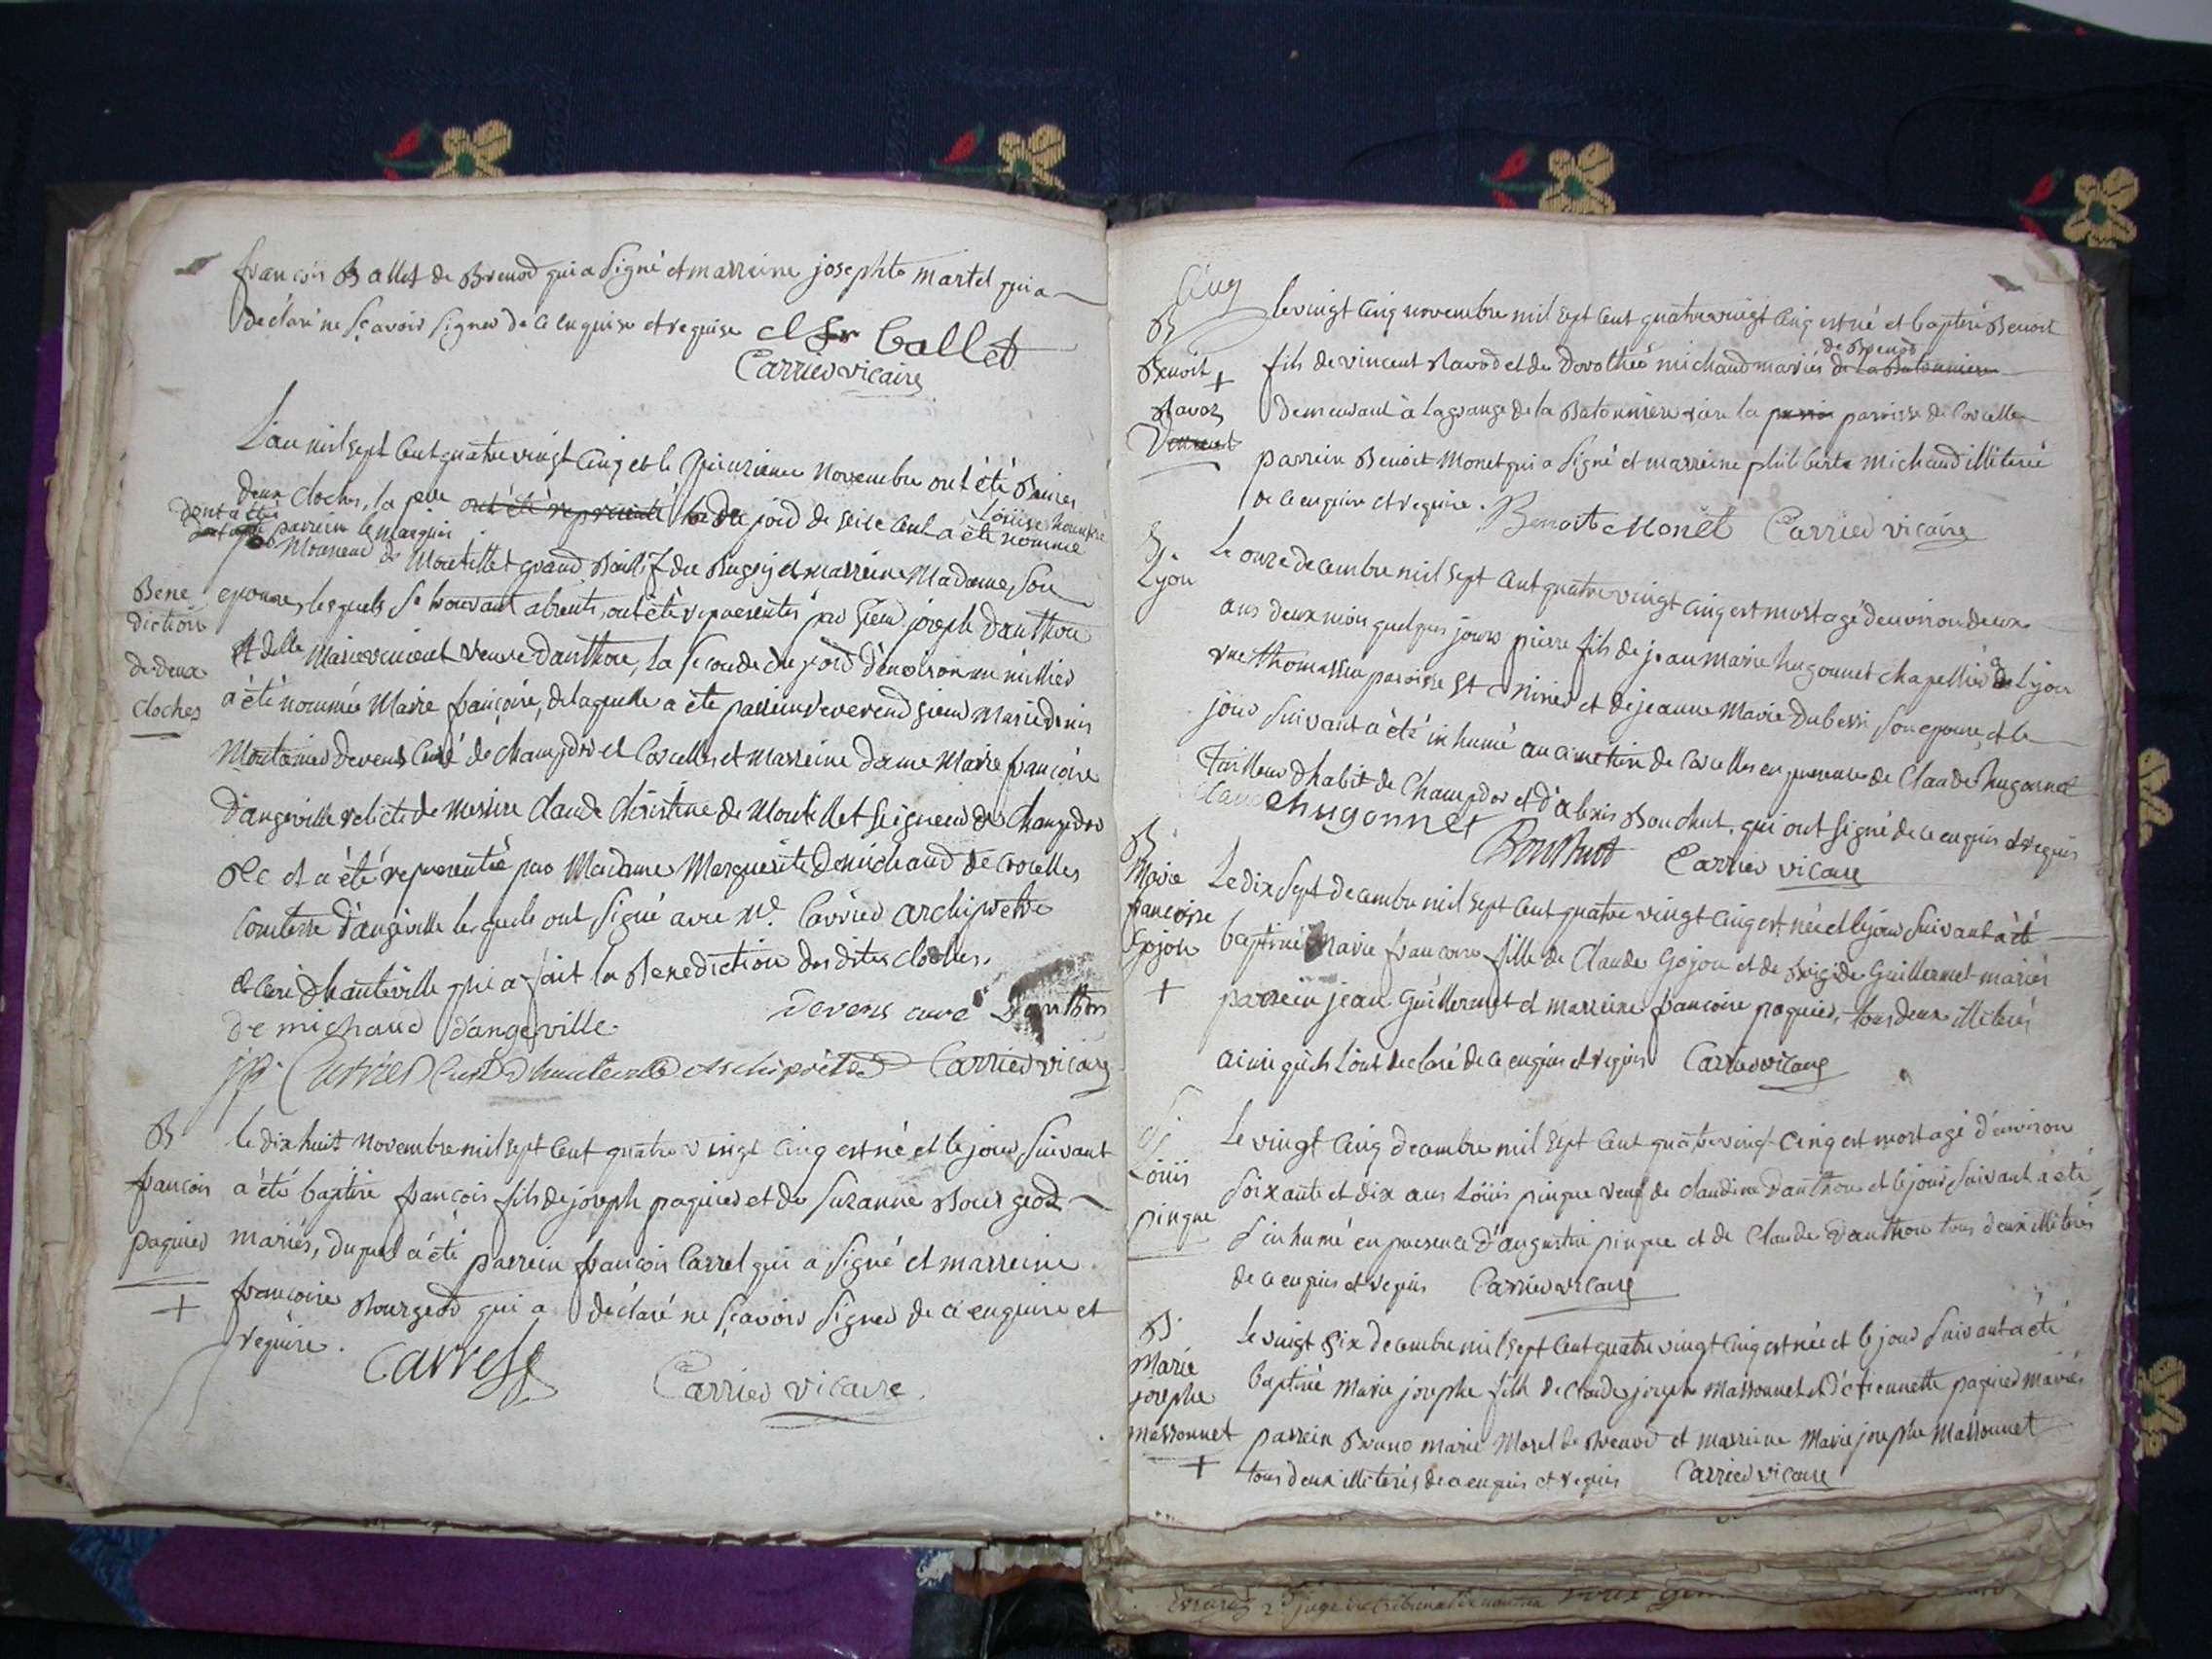 françois Ballet de Brenod qui a signé et marreine josephte martel qui a
declaré ne sçavoir signer de ce enquise et requise cl fr ballet
Carrier vicaire
L'an mil sept cent quatre vingt cinq et le quinzieme novembre ont été Benies
deux cloches, la pre ont été representé du poid de seize cent a été nommé Loüise honnoré
dont a été parrein le marquis
Monsieur de Montillet grand Baillif du Bugey et marreine Madame son
epouse, lesquels se trouvant absents, ont été representés par sieur joseph Danthon
et delle Marie vincent veuve Danthon, la seconde du poid d'environ un millier
a été nommée Marie françoise, de laquelle a été parrein reverend sieur Marie denis
Montanier Devens Curé de champdor et Corcelles et Marreine dame Marie françoise
D'angeville relicte de messire Claude Christine de Montillet seigneur de Champdor
&c et a été representée par Madame Marguerite Demichaud de Corcelles
Comtesse d'angeville lesquels ont signé avec Mr. Carrier archiprêtre
et curé dhauteville qui a fait la Benediction des dites cloches.
Devens curé Danthon
De michaud d'angeville
jp. Carrier Curé Dhauteville Archiprêtre Carrier vicaire
Bene
diction
de deux
cloches
B
françois
paquier
+
le dix huit Novembre mil sept cent quatre vingt cinq est né et le jour suivant
a été baptisé françois fils de joseph paquier et de Suzanne Bourgeod
mariés, duquel a été parrein françois Carrel qui a signé et marreine
françoise Bourgeod qui a declaré ne sçavoir signer de ce enquise et
requise.
Carrel
Carrier vicaire.
B
Benoit +
Ravoz
Vincent
le vingt cinq novembre mil sept cent quatre vingt cinq est né et baptisé Benoit
fils de vincent Ravod et de Dorothée michaud mariés de la Batonniere de Brenod
demeurant à la grange de la Batonniere riere la paroisse de Corcelles
parrein Benoit Monet qui a signé et marreine philiberte Michaud illiterée
de ce enquise et requise. Benoit Monet Carrier vicaire
S.
Lyon
Le onze decembre mil sept cent quatre vingt cinq est mort agé d'environ deux
ans deux mois quelques jours pierre fils de jean marie hugonnet chapellier à Lyon
rue thomassin paroisse St Nizier et de jeanne Marie Dubessi son epouse, et le
jour suivant a été inhumé au cimetiere de Corcelles en presence de Claude hugonnet
tailleur d'habit de Champdor et d'alexis Bouchut, qui ont signé de ce enquis et requis
claude hugonnet
Bouchut Carrier vicaire
B
Marie
françoise
Gojon
+
Le dix sept decembre mil sept cent quatre vingt cinq est née et le jour suivant a été
baptisée Marie françoise fille de Claude Gojon et de Brigide Guillermet mariés
parrein jean Guillermet et marreine françoise paquier, tous deux illiterés
ainsi qu'ils l'ont declaré de ce enquis et requis Carrier vicaire
S
Loüis
pingue
Le vingt cinq decembre mil sept cent quatre vingt cinq est mort agé d'environ
soixante et dix ans Loüis pingue veuf de claudine Danthon et le jour suivant a été
inhumé en presence d'augustin pingue et de Claude Danthon tous deux illiterés
de ce enquis et requis Carrier vicaire
B
Marie
josephe
massonnet
+
Le vingt six decembre mil sept cent quatre vingt cinq est née et le jour suivant a été
baptisée Marie josephe fille de Claude joseph Massonnet et d'etiennette paquier mariés
parrein Bruno marie Morel de Brenod et marreine Marie josephe Massonnet
tous deux illiterés de ce enquis et requis Carrier vicaire
juge